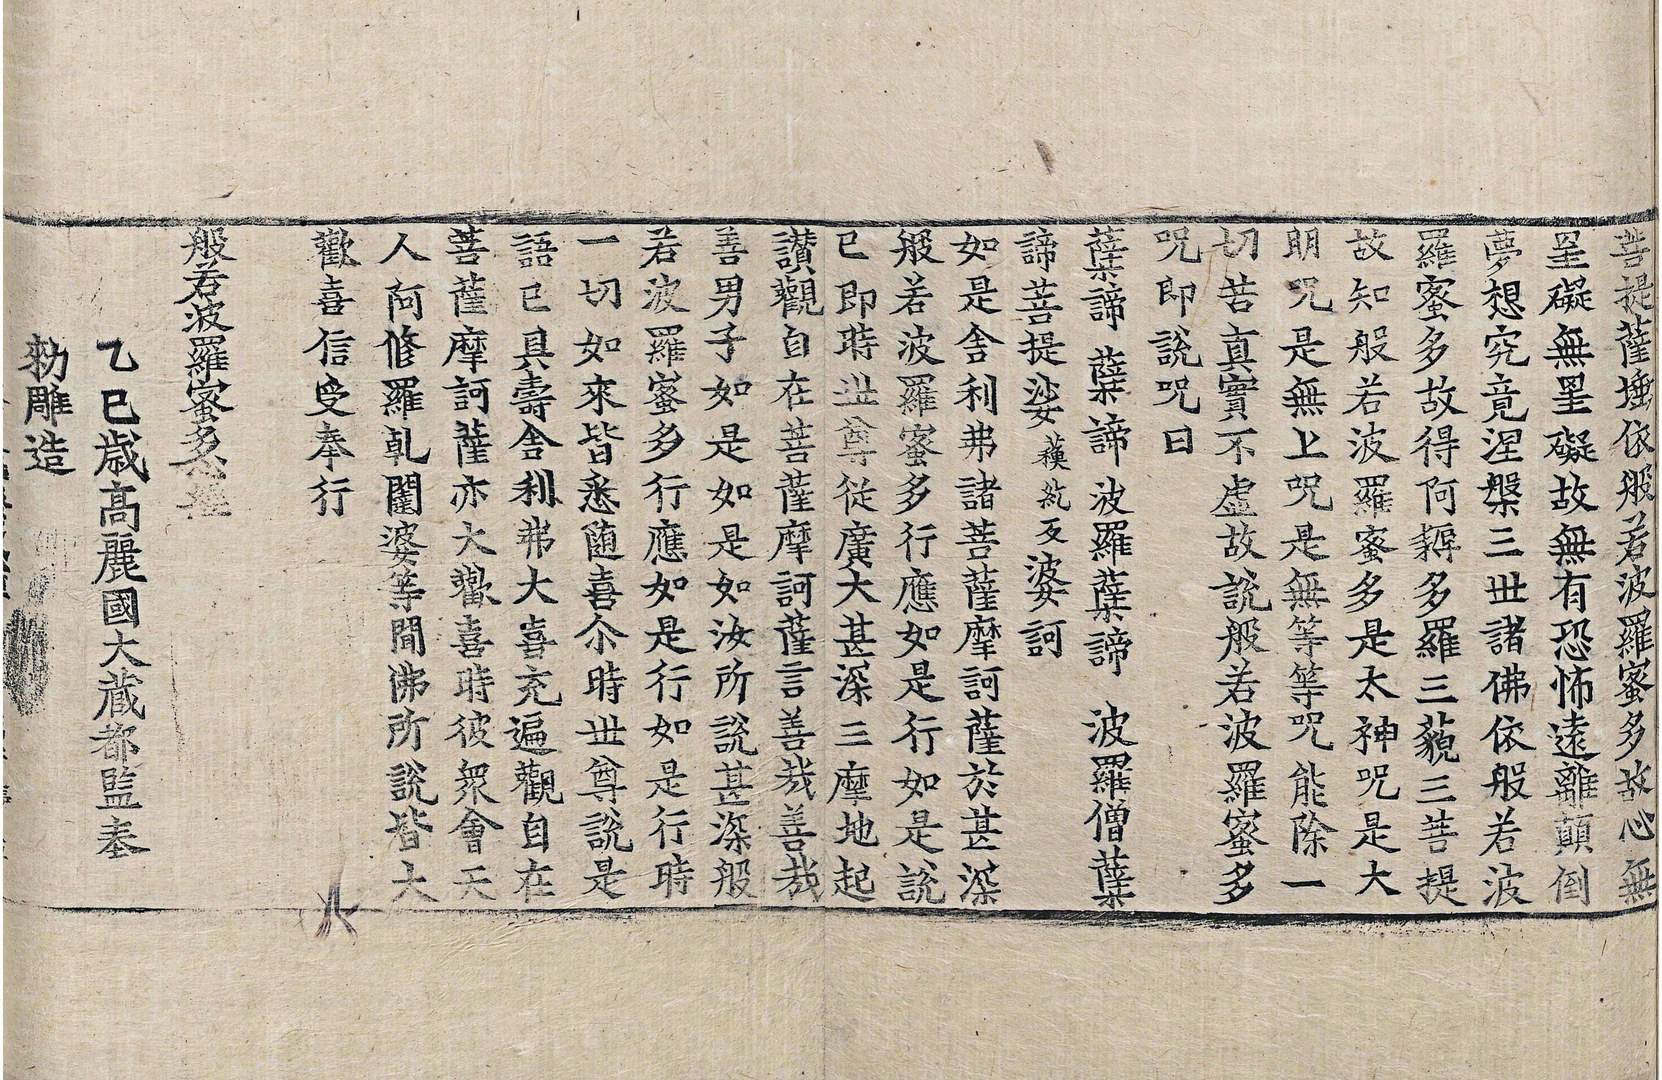 菩提薩埵依般若波羅蜜多故心無
罣礙無罣礙故無有恐怖遠離顛倒
夢想究竟涅槃三世諸佛依般若波
羅蜜多故得阿耨多羅三藐三菩提
故知般若波羅蜜多是太神呪是大
明呪是無上呪是無等等呪能除一
切苦真實不虛故說般若波羅蜜多
呪即說呪曰
蘖諦 蘖諦 波羅蘖諦 波羅僧蘖
諦菩提娑蘇紇反婆訶
如是舍利弗諸菩薩摩訶薩於甚深
般若波羅蜜多行應如是行如是說
已即時世尊從廣大甚深三摩地起
讚觀自在菩薩摩訶薩言善哉善哉
善男子如是如是如汝所說甚深般
若波羅蜜多行應如是行如是行時
一切如來皆悉隨喜尒時世尊說是
語已具壽舍利弗大喜充遍觀自在
菩薩摩訶薩亦大歡喜時彼衆會天
人阿修羅乹闥婆等聞佛所說皆大
歡喜信受奉行
般若波羅蜜多心經
乙巳歲高麗國大藏都監奉
勑雕造